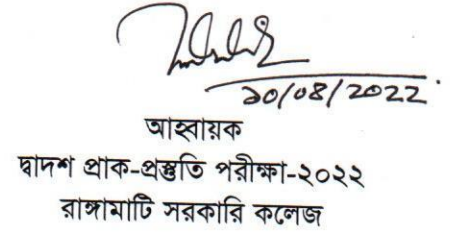 ১০/০৪/২০২২
আহবায়ক
দ্বাদশ প্রাক-প্রস্তুতি পরীক্ষা-২০২২
রাঙ্গামাটি সরকারি কলেজ